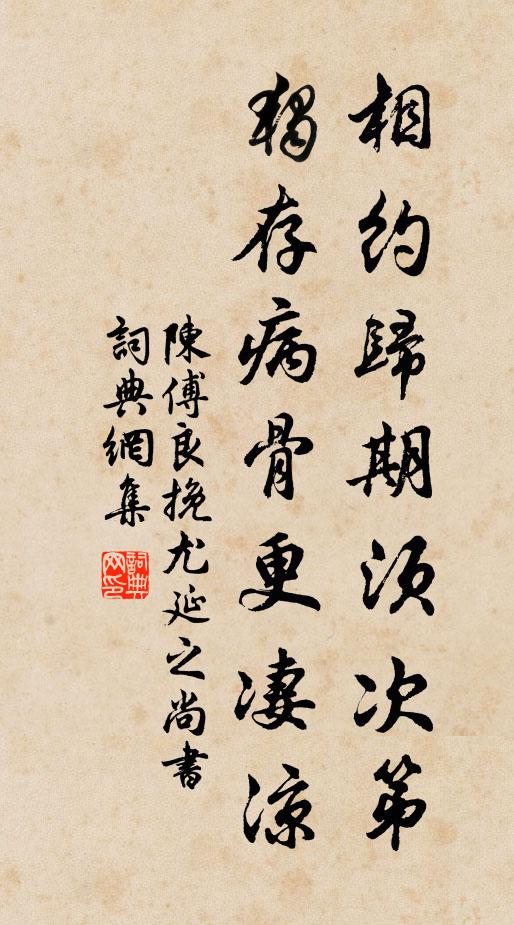 相約歸期須次第
獨存病骨更凄涼
陳傅良挽尤延之尚書
詞典網集
詞典网印